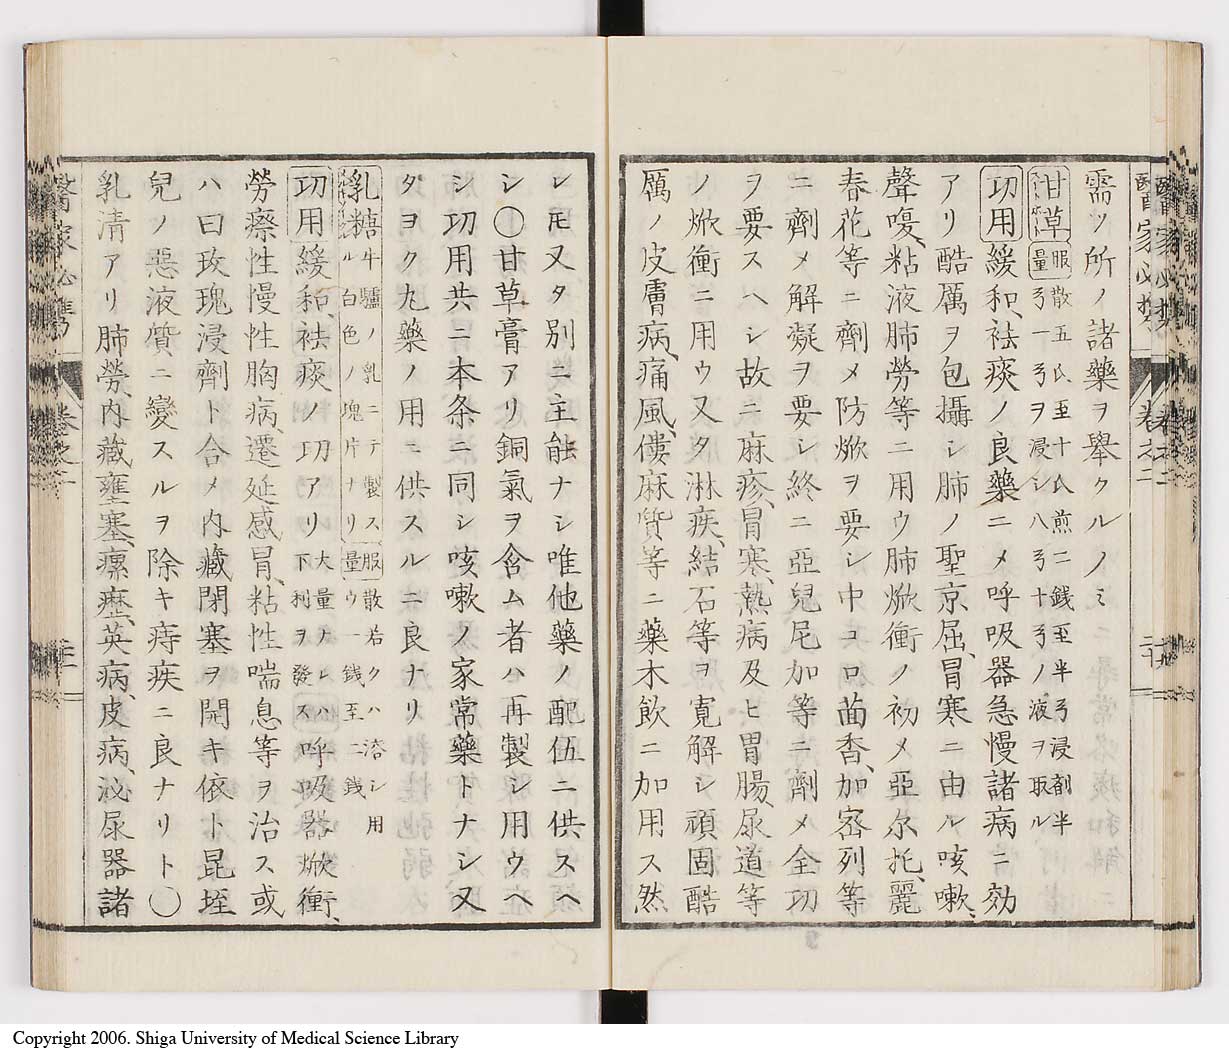 需ツ所ノ諸藥ヲ舉クルノミ
甘草 服量 散五氏至十氏煎二銭至半弓浸剤半
弓一弓ヲ浸シ八弓十弓ノ液ヲ取ル
功用 緩和、祛痰ノ良藥ニメ呼吸器急慢諸病ニ効
アリ酷厲ヲ包攝シ肺ノ聖京屈、冒寒ニ由ル咳嗽、
聲嗄、粘液肺勞等ニ用ウ肺焮衝ノ初メ亞尔托、麗
春花等ニ劑メ防焮ヲ要シ中コロ茴香、加密列等
ニ劑メ解凝ヲ要シ終ニ亞兒尼加等ニ劑メ全功
ヲ要スヘシ故ニ麻疹、冒寒、熱病及ヒ胃腸、尿道等
ノ焮衝ニ用ウ又タ淋疾、結石等ヲ寛解シ頑固酷
厲ノ皮膚病、痛風、僂麻質等ニ藥木飲ニ加用ス然
醫家必携 卷之二
レモ又タ別ニ主能ナシ唯他藥ノ配伍ニ供スヘ
シ○甘草膏アリ銅氣ヲ含ム者ハ再製シ用ウヘ
シ功用共ニ本条ニ同シ咳嗽ノ家常藥トナシ又
タヨク丸藥ノ用ニ供スルニ良ナリ
乳糖 牛驢ノ乳ニテ製ス
ル白色ノ塊片ナリ 服量 散若クハ溶シ用
ウ一銭至二銭
功用 緩和、祛痰ノ功アリ 大量ナレハ
下利ヲ發ス 呼吸器焮衝、
勞瘵性慢性胸病、遷延感冒、粘性喘息等ヲ治ス或
ハ曰玫瑰浸劑ト合メ内臓閉塞ヲ開キ依ト昆垤
兒ノ惡液質ニ變スルヲ除キ痔疾ニ良ナリト○
乳清アリ肺勞、内臓壅塞、瘰癧、英病、皮病、泌尿器諸
醫家必携
Copyright 2006. Shiga University of Medical Science Library